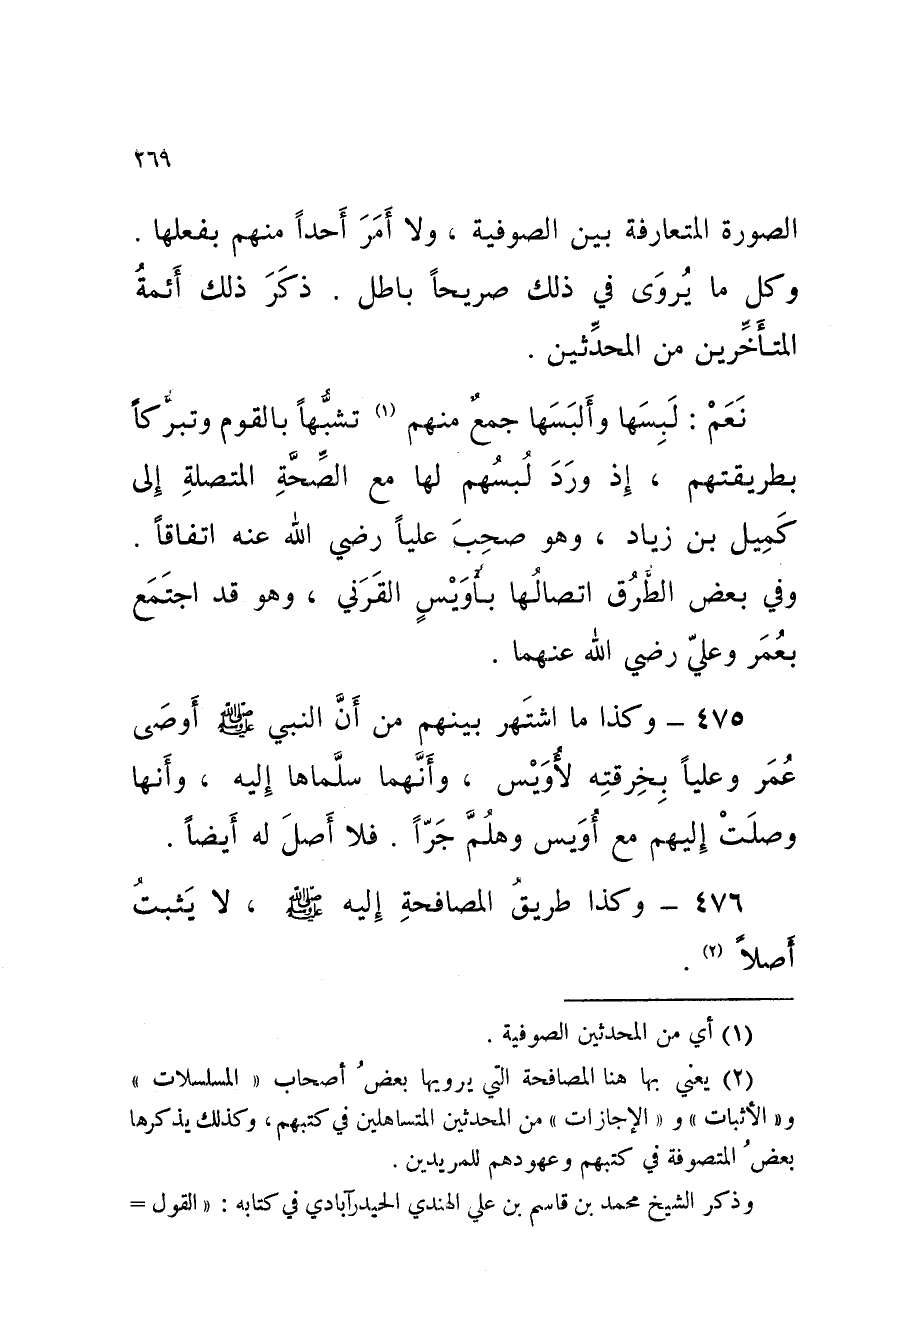 ٢٦٩
الصورة المتعارفة بين الصوفية ، ولا أَمَرَ أَحداً منهم بفعلها .
وكل ما يُروَى في ذلك صريحاً باطل . ذكَرَ ذلك أَئمةُ
المتأَخِّرين من المحدِّثين .
نَعَمْ : لَبِسَها وأَلبَسَها جمعٌ منهم (١) تشبُّهاً بالقوم وتبرُّكاً
بطريقتهم ، إِذ ورَدَ لُبسُهم لها مع الصِّحَّةِ المتصلةِ إِلى
كَمِيل بن زياد ، وهو صحِبَ علياً رضي الله عنه اتفاقاً .
وفي بعض الطُّرُق اتصالُها بأُوَيْسٍ القَرَني ، وهو قد اجتَمَع
بعُمَر وعليّ رضي الله عنهما .
٤٧٥ – وكذا ما اشتَهر بينهم من أَنَّ النبي ﷺ أَوصَى
عُمَر وعلياً بِخِرقتِه لأُوَيْس ، وأَنَّهما سلَّماها إِليه ، وأَنها
وصلَتْ إِليهم مع أُوَيس وهلُمَّ جَرّاً . فلا أَصلَ له أَيضاً .
٤٧٦ – وكذا طريقُ المصافحةِ إِليه ﷺ ، لا يَثبتُ
أَصلاً (٢) .
(١) أي من المحدثين الصوفية .
(٢) يعني بها هنا المصافحة التي يرويها بعضُ أصحاب « المسلسلات »
و« الأثبات » و « الإجازات » من المحدثين المتساهلين في كتبهم ، وكذلك يذكرها
بعضُ المتصوفة في كتبهم وعهودهم للمريدين .
وذكر الشيخ محمد بن قاسم بن علي الهندي الحيدرآبادي في كتابه : « القول =